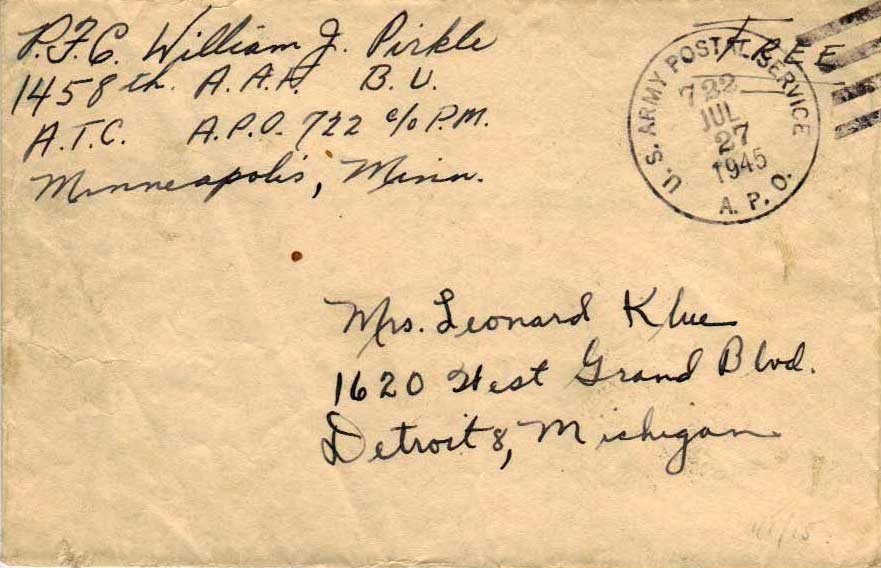 P.F.C. William J. Pirkle
1458th. A.A.F. B.U.
A.T.C. A.P.O. 722 c/o P.M.
Minneapolis, Minn.
FREE
U.S. ARMY POSTAL SERVICE
722
JUL
27
1945
A.P.O.
Mrs. Leonard Klue
1620 West Grand Blvd.
Detroit 8, Michigan